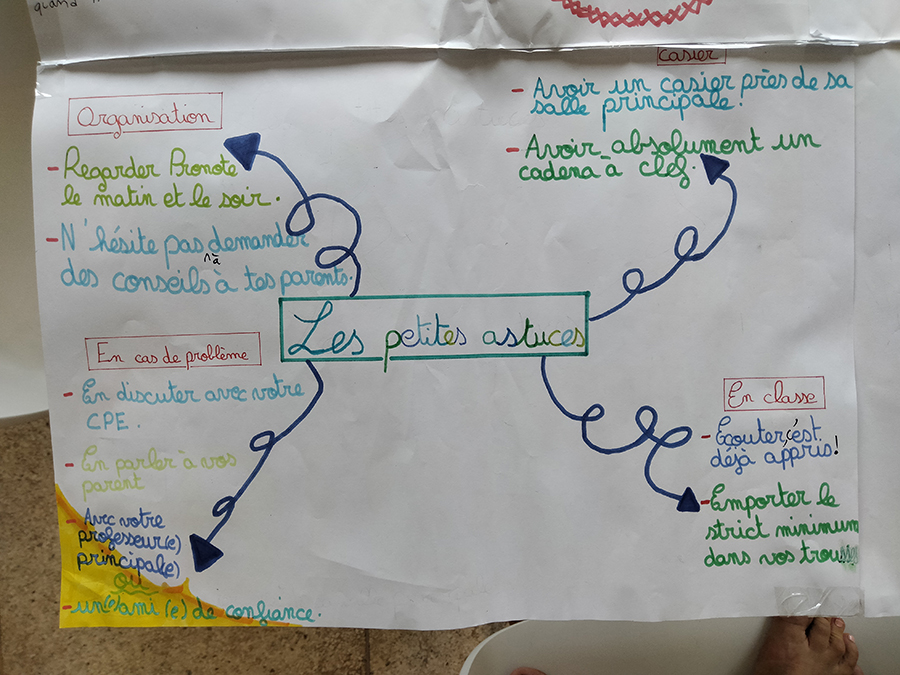 quand
Les petites astuces
Organisation
- Regarder Pronote
le matin et le soir.
- N'hésite pas à demander
des conseils à tes parents.
Casier
- Avoir un casier près de sa
salle principale.
- Avoir absolument un
cadena à clef.
En cas de problème
- En discuter avec votre
CPE.
- En parler à vos
parent
- Avec votre
professeur(e)
principale(e)
ou
- un(e) ami(e) de confiance.
En classe
- Ecouter c'est
déjà appris!
- Emporter le
strict minimum
dans vos